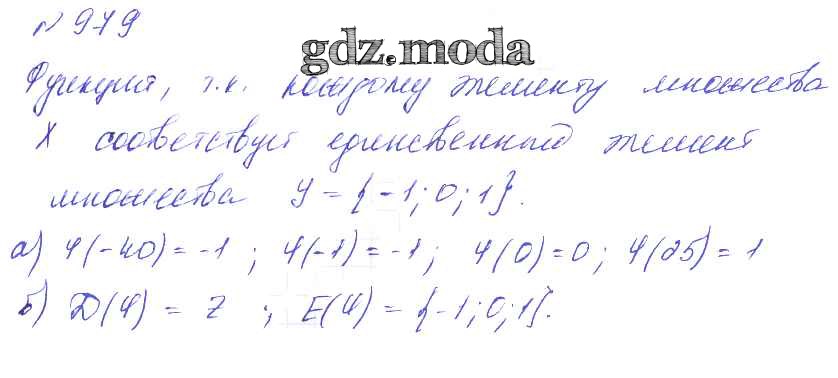 № 979
gdz.moda
Функция, т.к. каждому элементу множества
X соответствует единственный элемент
множества Y = {-1; 0; 1}.
а) φ(-40) = -1 ; φ(-1) = -1 ; φ(0) = 0 ; φ(25) = 1
б) D(φ) = Z ; E(φ) = {-1; 0; 1}.